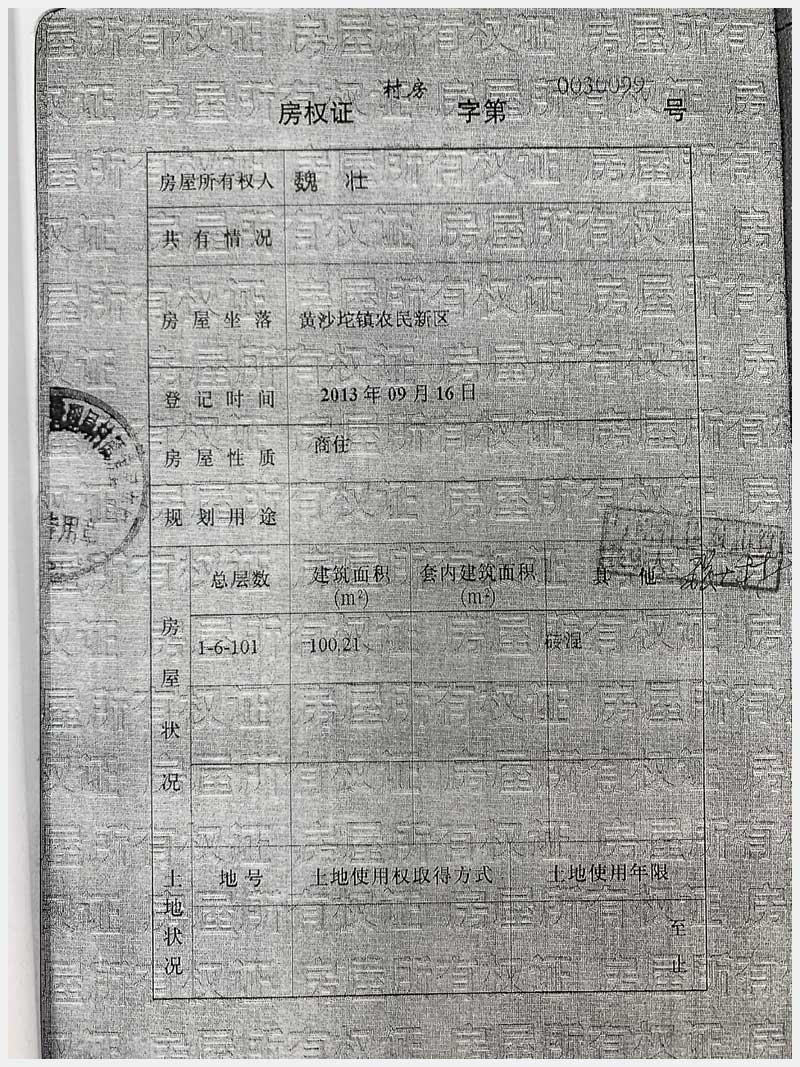 村房
房权证 字第 0030099 号
房屋所有权人 魏 壮
共有情况
房屋坐落 黄沙坨镇农民新区
登记时间 2013年09月16日
房屋性质 商住
规划用途
房屋状况
总层数 建筑面积(m²) 套内建筑面积(m²) 其 他
1-6-101 100.21 砖混
土地状况
地号 土地使用权取得方式 土地使用年限
至
止
专用章